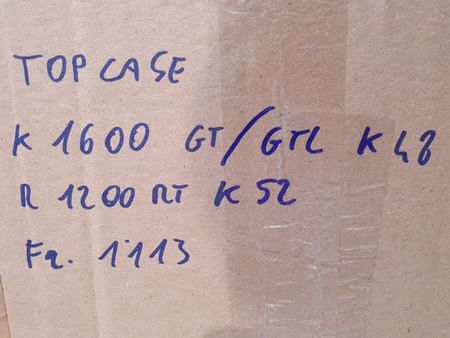 TOP CASE
K 1600 GT/GTL K48
R 1200 RT K 52
Fa. 1113